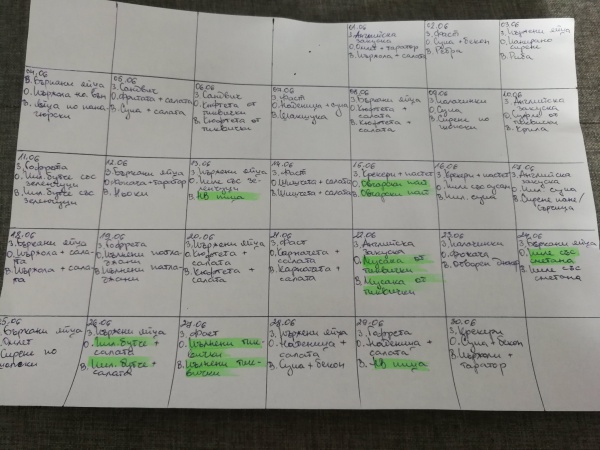 01.06
З. Английска
закуска
О. Омлет + таратор
В. Пържола + салата
02.06
З. Фаст
О. Супа + бекон
В. Ребра
03.06
З. Пържени яйца
О. Панирано
сирене
В. Риба
04.06
З. Бъркани яйца
О. Пържола
В. Яйца по пана-
гюрски
05.06
З. Сандвич
О. Фритата + салата
В. Супа + салата
06.06
З. Сандвич
О. Кюфтета от
тиквички
В. Кюфтета от
тиквички
З. Фаст
О. Наденица + супа
В. Шакшука
08.06
З. Бъркани яйца
О. Кюфтета +
салата
В. Кюфтета +
салата
09.06
З. Палачинки
О. Супа
В. Сирене по
шопски
10.06
З. Английска
закуска
О. Суфле от
тиквички
В. Крила
11.06
З. Гофрета
О. Пил. бутче със
зеленчуци
В. Пил. бутче със
зеленчуци
12.06
З. Бъркани яйца
В. Ньоки
13.06
З. Пържени яйца
О. Пиле със зе-
ленчуци
В. КВ пица
14.06
З. Фаст
О. Шишчета + салата
В. Шишчета + салата
15.06
З. Крекери + пастет
О. Овчарски пай
В. Овчарски пай
16.06
З. Крекери + пастет
О. Пиле със сусам
В. Пил. супа
17.06
З. Английска
закуска
О. Пил. супа
В. Сирене пане/
горчица
18.06
З. Бъркани яйца
О. Пържола + сала-
та
В. Пържола + сала-
та
19.06
З. Гофрета
О. Пълнени патла-
джани
В. Пълнени патла-
джани
20.06
З. Пържени яйца
О. Кюфтета +
салата
В. Кюфтета +
салата
21.06
З. Фаст
О. Карначета +
салата
В. Карначета +
салата
22.06
З. Английска
закуска
О. Мусака от
тиквички
В. Мусака от
тиквички
23.06
З. Палачинки
О. Фокача
В. Отворен
24.06
З. Бъркани яйца
О. Пиле със
сметана
В. Пиле със
сметана
25.06
Бъркани яйца
Омлет
Сирене по
шопски
26.06
З. Пържени яйца
О. Пил. бутче +
салата
В. Пил. бутче +
салата
27.06
З. Фаст
О. Пълнени тик-
вички
В. Пълнени тик-
вички
28.06
З. Пържени яйца
О. Наденица +
салата
В. Супа + бекон
29.06
З. Гофрета
О. Наденица +
салата
В. КВ пица
30.06
З. Крекери
О. Супа + бекон
В. Пържоли +
таратор